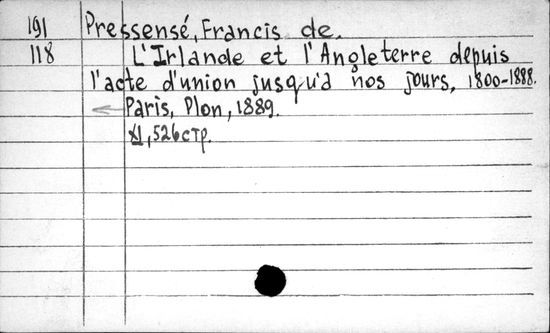 191 Pressensé, Francis de.
118 L'Irlande et l'Angleterre depuis
l'acte d'union jusqu'à nos jours, 1800-1888.
Paris, Plon, 1889.
XI, 526 стр.